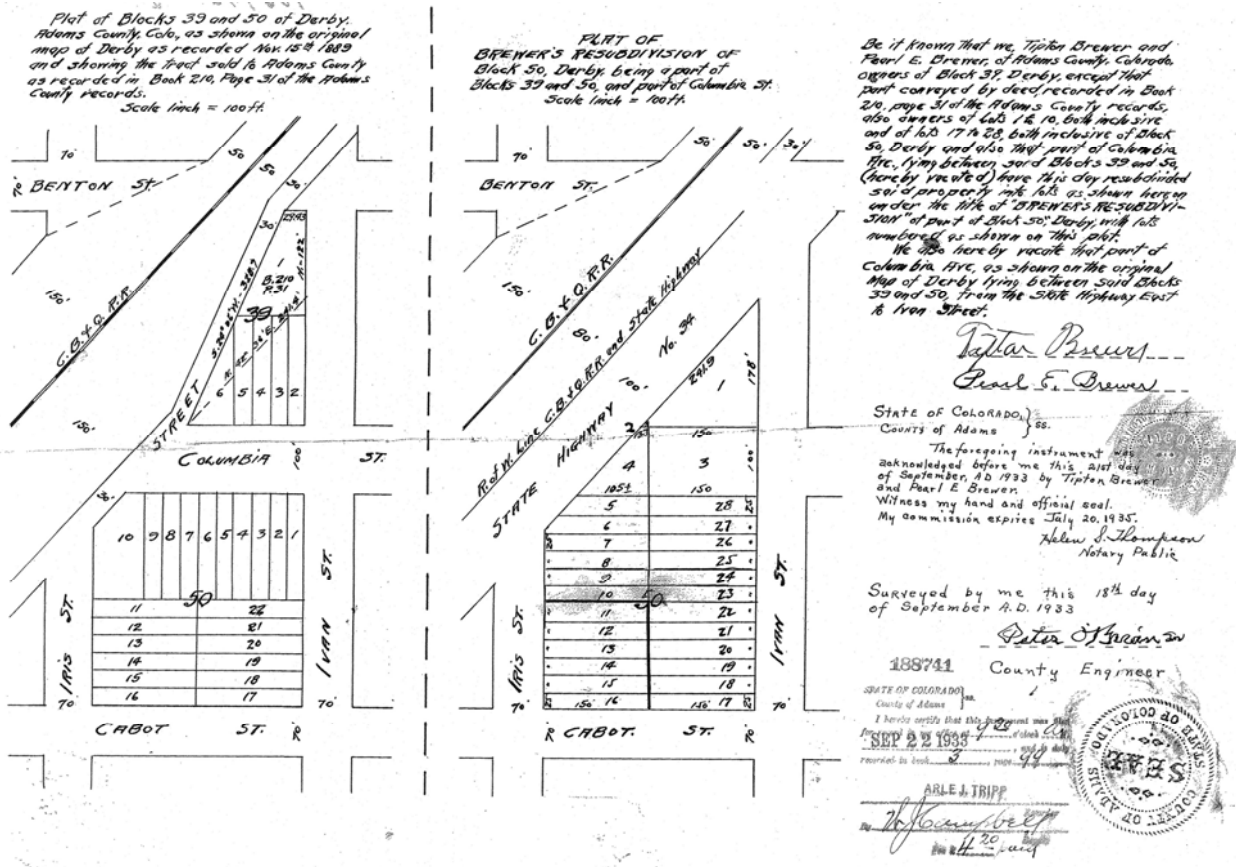 Plat of Blocks 39 and 50 of Derby,
Adams County, Colo, as shown on the original
map of Derby as recorded Nov. 15th 1889
and showing the tract sold to Adams County
as recorded in Book 210, Page 31 of the Adams
County records.
Scale 1inch = 100ft.
70'
70'
BENTON St.
50
50
50
30'
30'
29.93
N-122'
1
B.210
P.31
39
150'
C.B.& Q. R.R.
6 5 4 3 2
150'
STREET
COLUMBIA
100'
ST.
10 9 8 7 6 5 4 3 2 1
50
11 22
12 21
13 20
14 19
15 18
16 17
IRIS ST.
IVAN ST.
70'
70'
CABOT ST.
70
PLAT OF
BREWER'S RESUBDIVISION OF
Block 50, Derby, being a part of
Blocks 39 and 50, and part of Columbia St.
Scale 1inch = 100ft.
70'
70'
BENTON ST.
50'
50
30'
150'
C.B.& Q. R.R.
80'
R.of W. Line C.B.& Q.R.R. and State Highway
100'
No. 34
STATE HIGHWAY
241.9
1
178'
2
150
4 3
100'
105± 150
5 28
6 27
7 26
8 25
9 24
10 23
50
11 22
12 21
13 20
14 19
15 18
150' 16 150' 17
IRIS ST.
IVAN ST.
70'
70'
CABOT. ST.
70
70
Be it known that we, Tipton Brewer and
Pearl E. Brewer, of Adams County, Colorado,
owners of Block 39, Derby, except that
part conveyed by deed, recorded in Book
210, page 31 of the Adams County records,
also owners of Lots 1 to 10, both inclusive
and of lots 17 to 28, both inclusive of Block
50, Derby and also that part of Columbia
Ave, lying between said Blocks 39 and 50,
(hereby vacated) have this day resubdivided
said property into lots as shown hereon
under the title of "BREWER'S RESUBDIVI-
SION" of part of Block 50", Derby, with lots
numbered as shown on this plot.
We also hereby vacate that part of
Columbia Ave, as shown on the original
Map of Derby lying between said Blocks
39 and 50, from the State Highway East
to Ivan Street.
Pearl E. Brewer
STATE OF COLORADO, } ss.
COUNTY of Adams
The foregoing instrument was
acknowledged before me this 21st day
of September, AD 1933 by Tipton Brewer
and Pearl E Brewer.
Witness my hand and official seal.
My commission expires July 20, 1935.
Helen S. Thompson
Notary Public
Surveyed by me this 18th day
of September A.D. 1933
County Engineer
188741
STATE OF COLORADO } ss.
County of Adams
I hereby certify that this instrument was filed
SEP 22 1933
recorded in book 3 page 99
ARLE J. TRIPP
COUNTY OF ADAMS
STATE OF COLORADO
SEAL